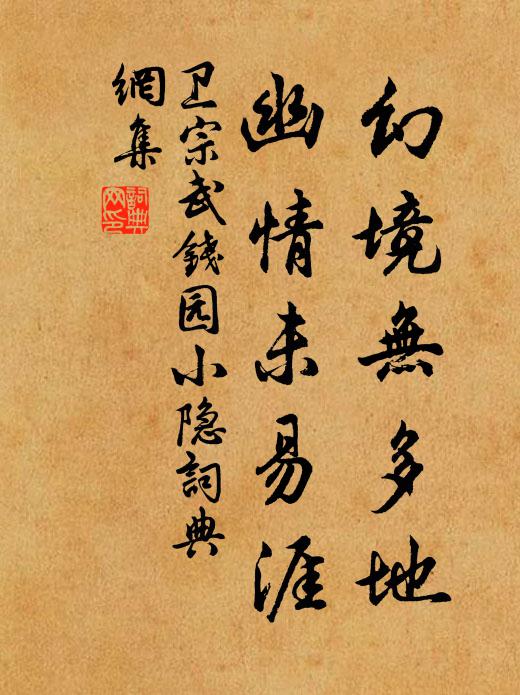 幻境無多地
幽情未易涯
卫宗武錢园小隐詞典
網集
詞典
网印